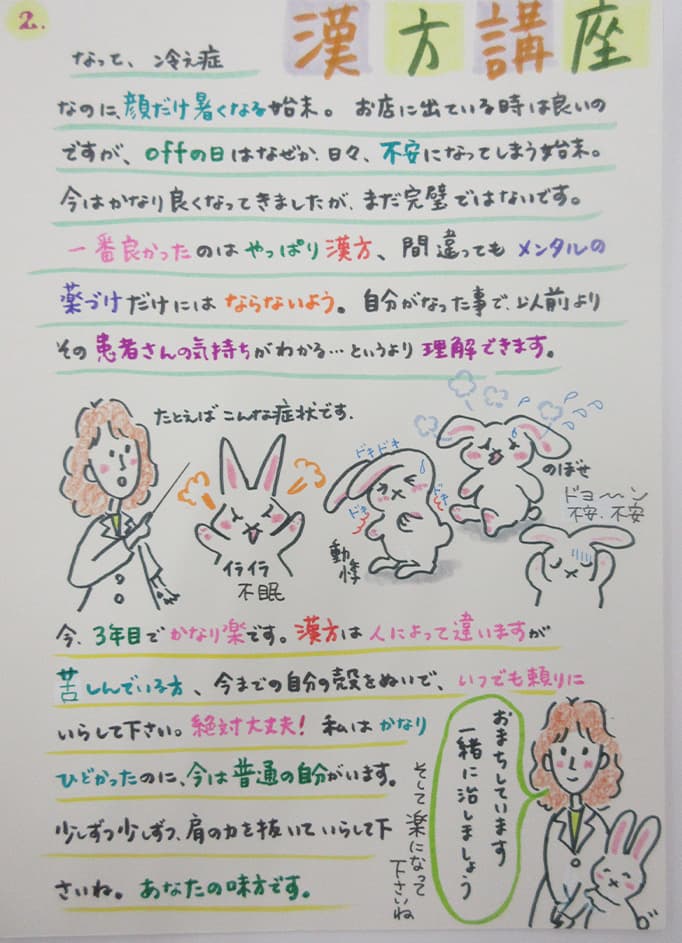 2.
漢方講座
なって、冷え症
なのに、顔だけ暑くなる始末。お店に出ている時は良いの
ですが、offの日はなぜか、日々、不安になってしまう始末。
今はかなり良くなってきましたが、まだ完璧ではないです。
一番良かったのはやっぱり漢方、間違ってもメンタルの
薬づけだけにはならないよう。自分がなった事で、以前より
その患者さんの気持ちがわかる…というより理解できます。
たとえばこんな症状です。
イライラ
不眠
ドキドキ
ドキ
ドキ
動悸
のぼせ
ドヨ〜ン
不安、不安
今、3年目でかなり楽です。漢方は人によって違いますが
苦しんでいる方、今までの自分の殻をぬいで、いつでも頼りに
いらして下さい。絶対大丈夫！私はかなり
ひどかったのに、今は普通の自分がいます。
少しずつ少しずつ、肩の力を抜いていらして下
さいね。あなたの味方です。
そして楽になって
下さいね
おまちしています
一緒に治しましょう